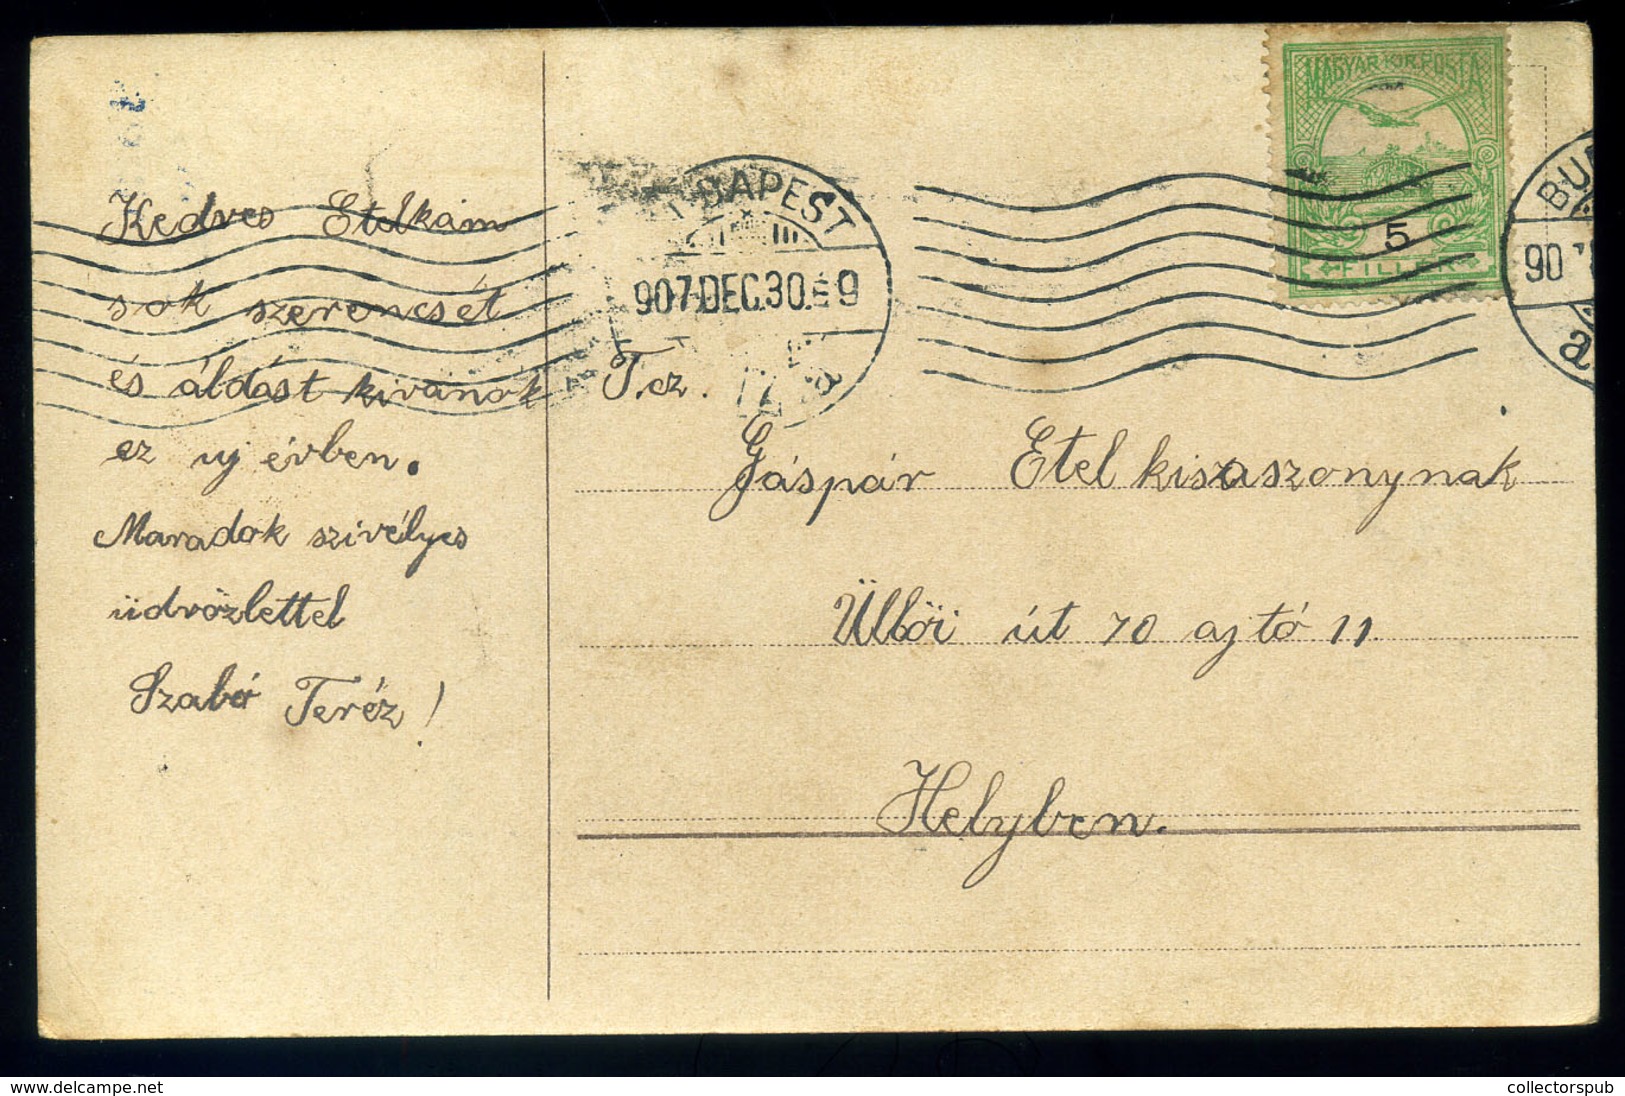 Kedves Etelkám
sok szerencsét
és áldást kivánok
ez uj évben.
Maradok szivélyes
üdvözlettel
Szabó Teréz!
MAGYAR KIR. POSTA
5
FILLÉR
BUDAPEST
907 DEC. 30. 9
a
BUD
90
a
T. cz.
Gáspár Etel kisaszonynak
Üllői út 70 ajtó 11
Helyben.
www.delcampe.net
collectorspub